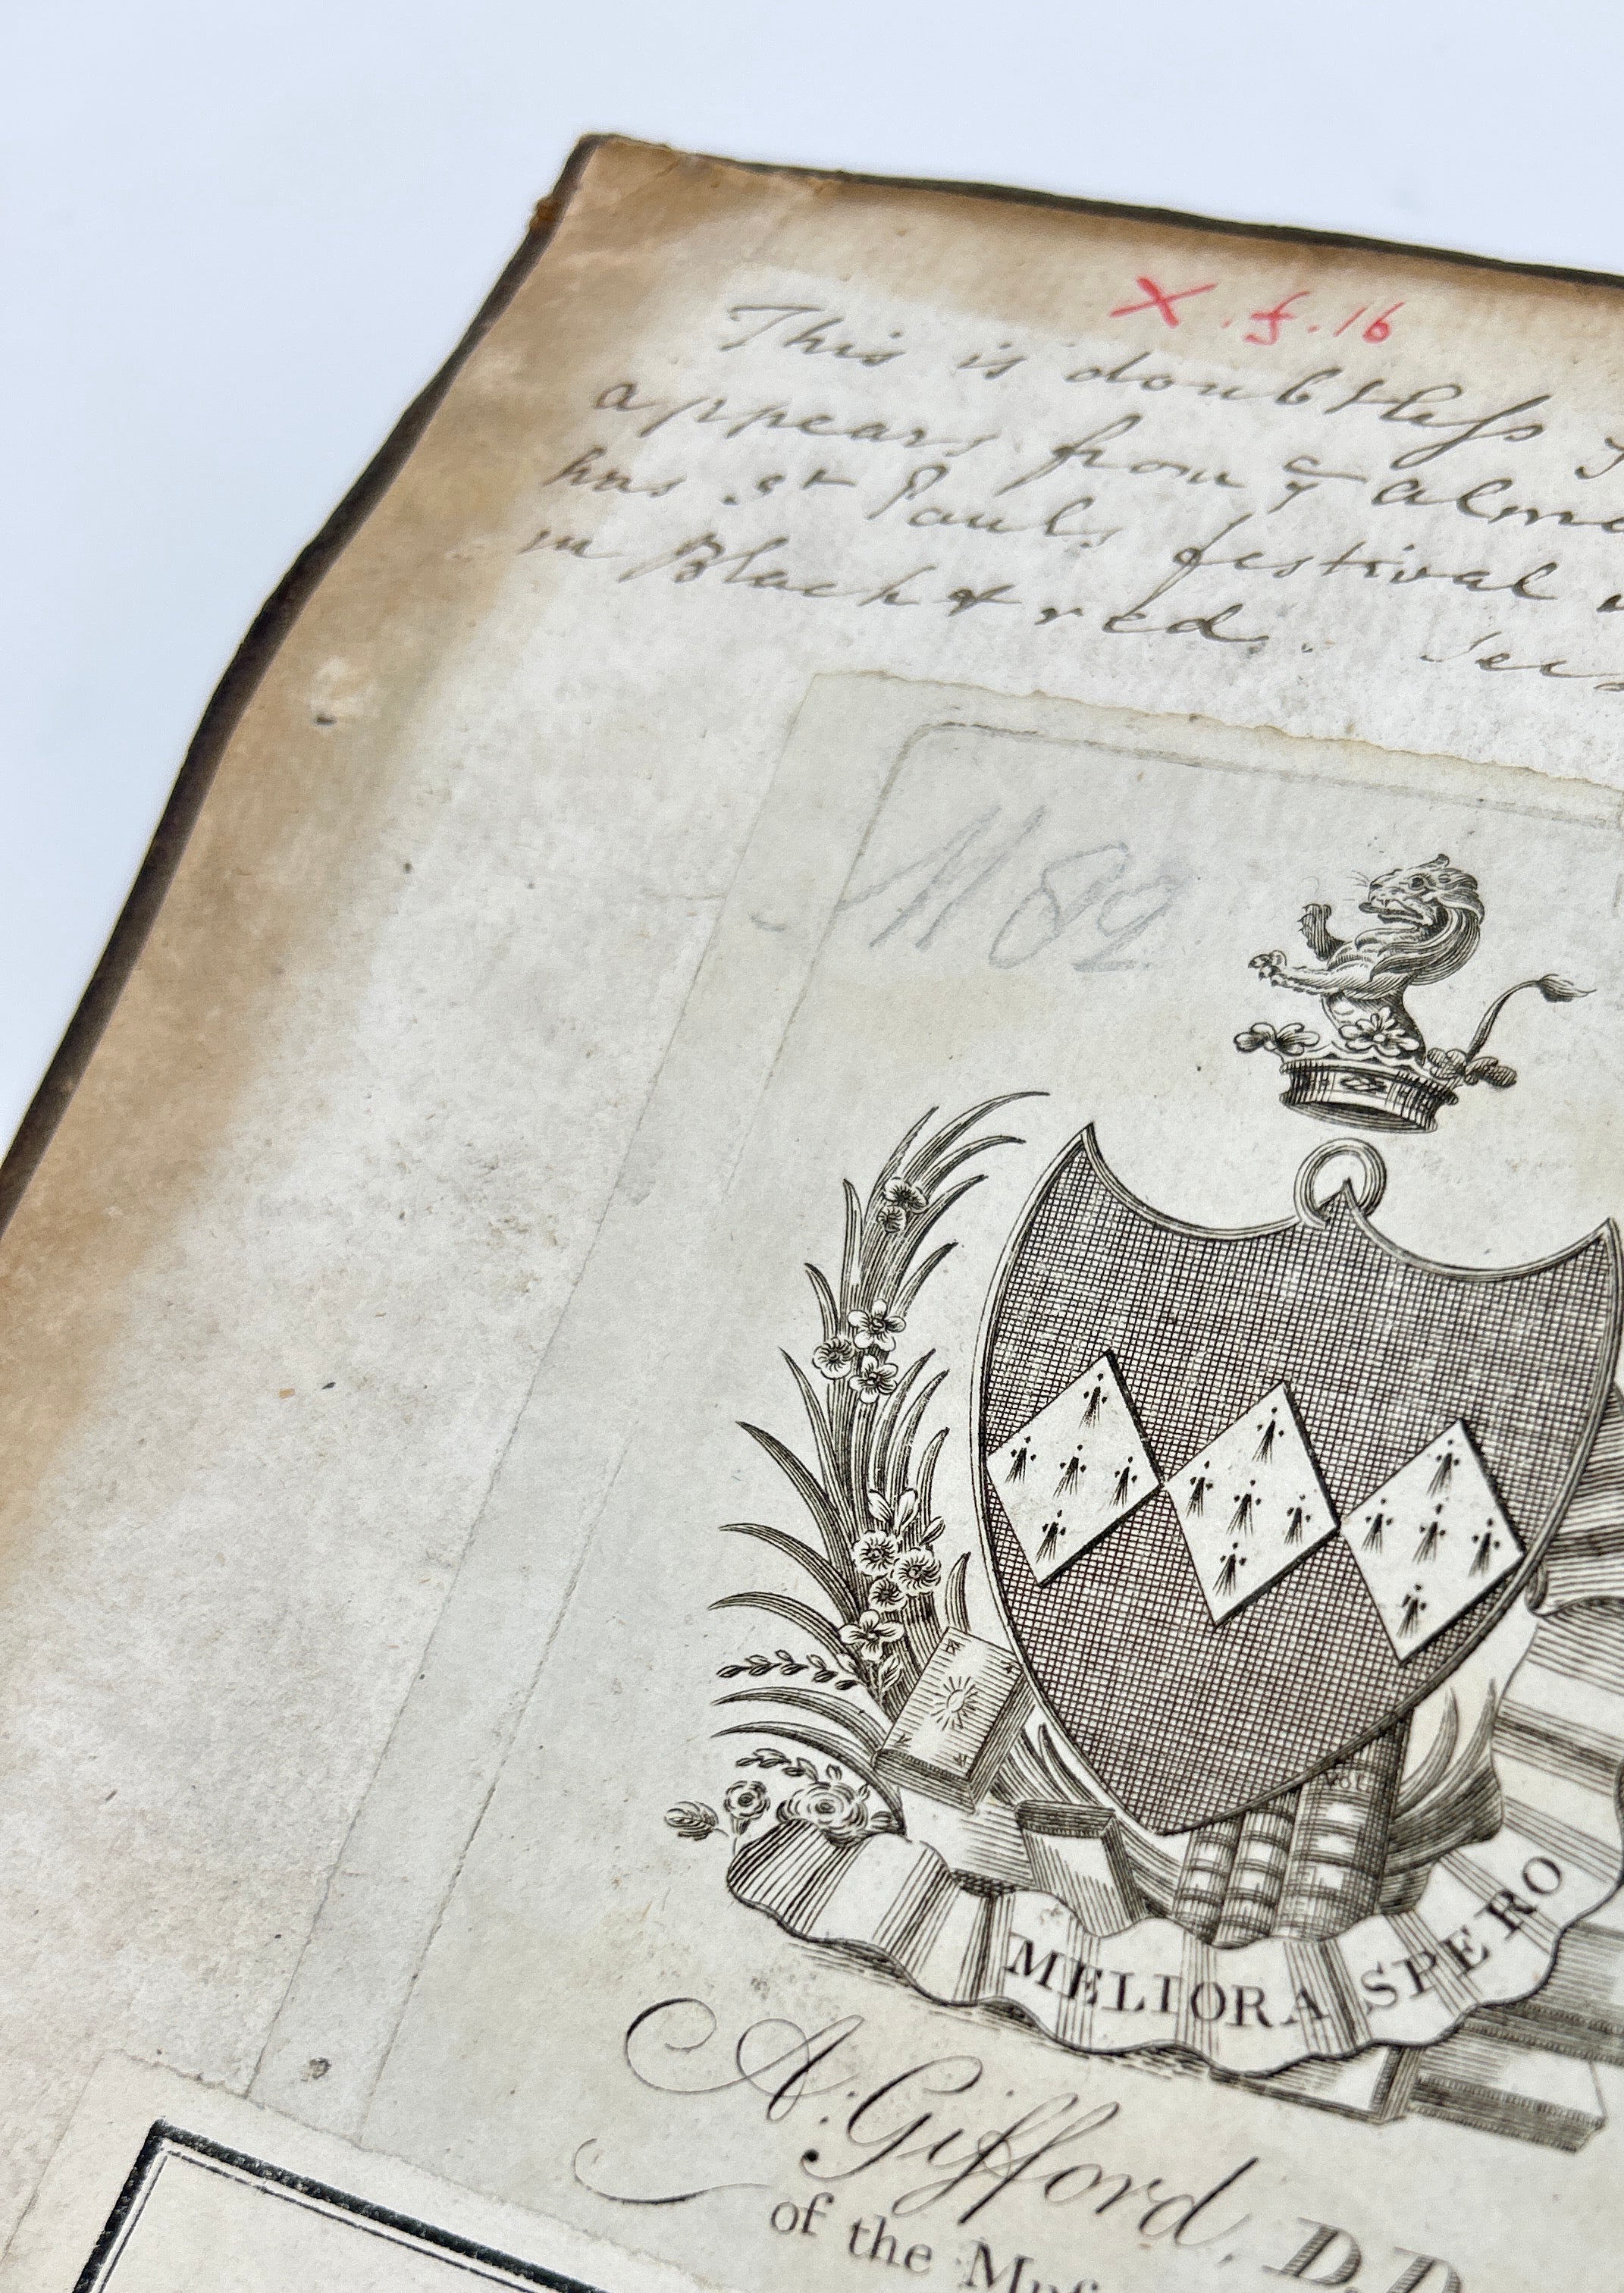 X.f.16
This is doubtless
appears from ye
has St Pauls festival
in Black & red.
M 82
VOL
MELIORA SPERO
A. Gifford, D.D.
of the